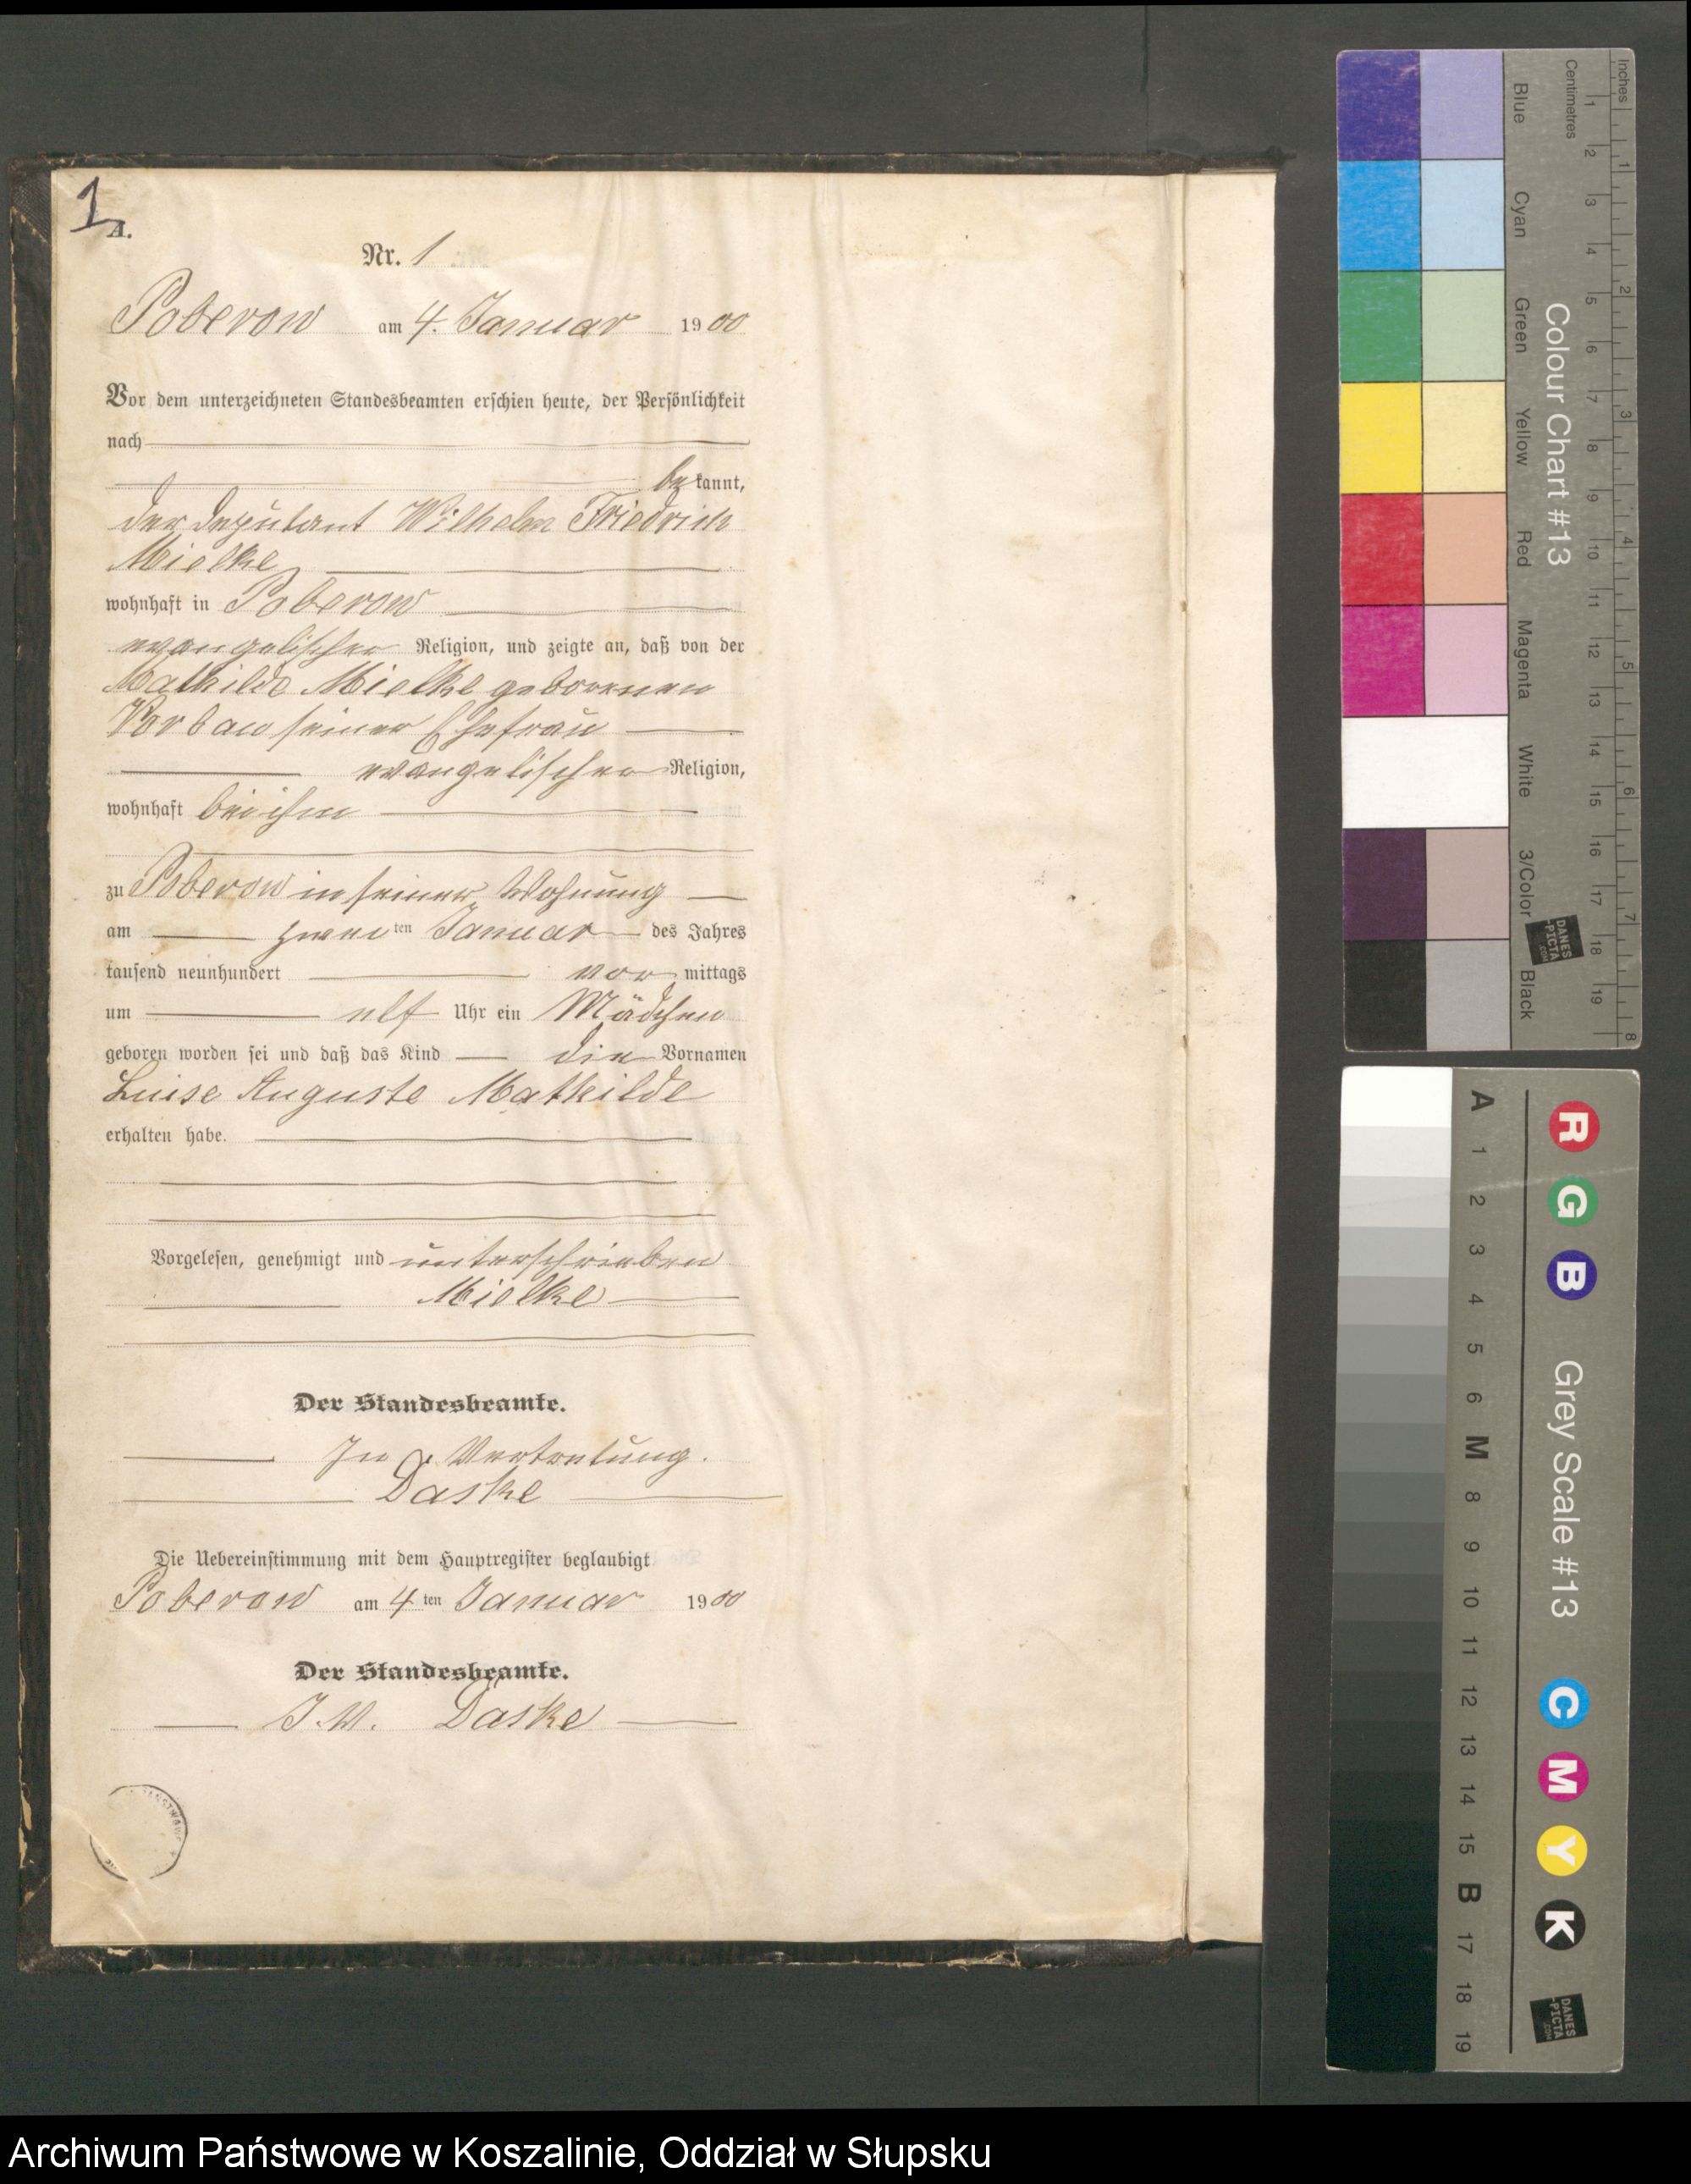 1
A.
Nr. 1
Poberow am 4. Januar 1900
Vor dem unterzeichneten Standesbeamten erschien heute, der Persönlichkeit
nach
bekannt,
der Deputant Wilhelm Friedrich
Mielke
wohnhaft in Poberow
evangelischer Religion, und zeigte an, daß von der
Mathilde Mielke geborenen
Vorbau seiner Ehefrau
evangelischer Religion,
wohnhaft bei ihm
zu Poberow in seiner Wohnung
am zweiten Januar des Jahres
tausend neunhundert vor mittags
um elf Uhr ein Mädchen
geboren worden sei und daß das Kind die Vornamen
Luise Auguste Mathilde
erhalten habe.
Vorgelesen, genehmigt und unterschrieben
Mielke
Der Standesbeamte.
In Vertretung.
Daske
Die Uebereinstimmung mit dem Hauptregister beglaubigt
Poberow am 4ten Januar 1900
Der Standesbeamte.
J. V. Daske
Inches
Centimetres
1 2 3 4 5 6 7 8
1 2 3 4 5 6 7 8 9 10 11 12 13 14 15 16 17 18 19
Colour Chart #13
Blue Cyan Green Yellow Red Magenta White 3/Color Black
DANES
PICTA
.COM
R G B Grey Scale #13 C M Y K
A 1 2 3 4 5 6 M 8 9 10 11 12 13 14 15 B 17 18 19
DANES
-PICTA
.COM
Archiwum Państwowe w Koszalinie, Oddział w Słupsku